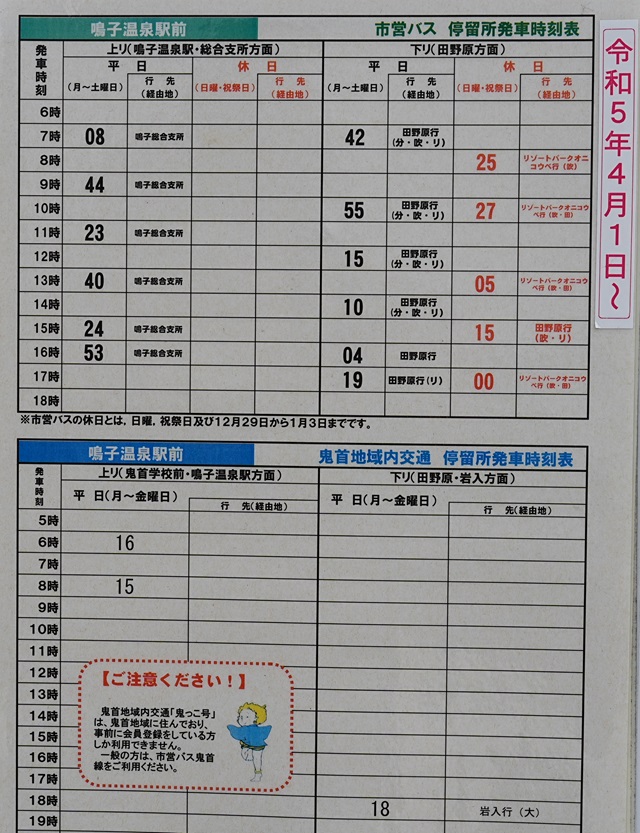 鳴子温泉駅前 市営バス 停留所発車時刻表
令和5年4月1日～
発車時刻 上り(鳴子温泉駅・総合支所方面) 下り(田野原方面)
平 日 休 日 平 日 休 日
(月～土曜日) 行 先(経由地) (日曜・祝祭日) 行 先(経由地) (月～土曜日) 行 先(経由地) (日曜・祝祭日) 行 先(経由地)
6時
7時 08 鳴子総合支所 42 田野原行(分・吹・リ)
8時 25 リゾートパークオニコウベ行(吹)
9時 44 鳴子総合支所
10時 55 田野原行(分・吹・リ) 27 リゾートパークオニコウベ行(吹・田)
11時 23 鳴子総合支所
12時 15 田野原行(分・吹・リ)
13時 40 鳴子総合支所 05 リゾートパークオニコウベ行(吹・田)
14時 10 田野原行(分・吹・リ)
15時 24 鳴子総合支所 15 田野原行(吹・リ)
16時 53 鳴子総合支所 04 田野原行
17時 19 田野原行(リ) 00 リゾートパークオニコウベ行(吹・田)
18時
※市営バスの休日とは，日曜，祝祭日及び12月29日から1月3日までです。
鳴子温泉駅前 鬼首地域内交通 停留所発車時刻表
発車時刻 上り(鬼首学校前・鳴子温泉駅方面) 下り(田野原・岩入方面)
平 日(月～金曜日) 行 先(経由地) 平 日(月～金曜日) 行 先(経由地)
5時
6時 16
7時
8時 15
9時
10時
11時
12時
13時
14時
15時
16時
17時
18時 18 岩入行(大)
19時
【ご注意ください！】
鬼首地域内交通「鬼っこ号」
は、鬼首地域に住んでおり、
事前に会員登録をしている方
しか利用できません。
一般の方は、市営バス鬼首
線をご利用ください。